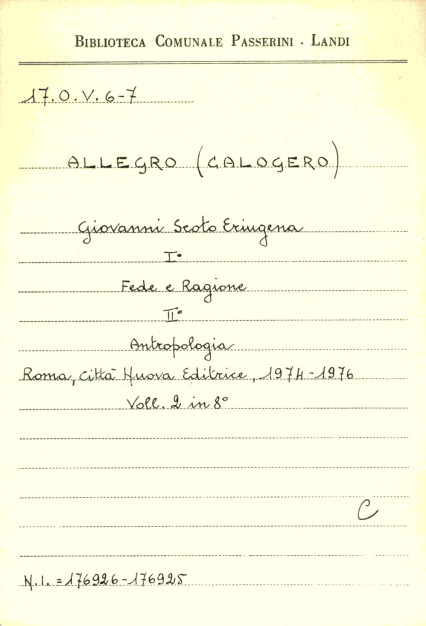 BIBLIOTECA COMUNALE PASSERINI - LANDI
17.O.V.6-7
ALLEGRO (CALOGERO)
Giovanni Scoto Eriugena
I°
Fede e Ragione
II°
Antropologia
Roma, Città Nuova Editrice, 1974-1976
Voll. 2 in 8°
C
N.I. = 176926-176925